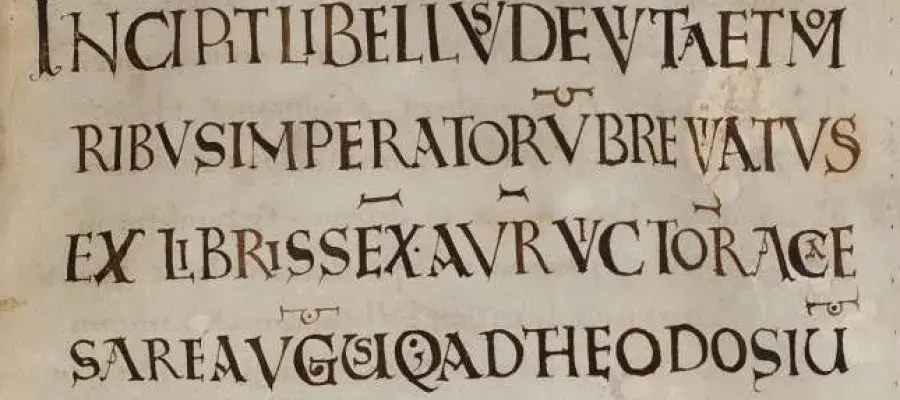 INCIPIT LIBELLVS DE VITA ET MO
RIBVS IMPERATORV̄ BREVIATVS
EX LIBRIS SEX̄· AVR̄ VICTOR̄ A CAE
SARE AVḠ USQ; AD THEODOSIŪ